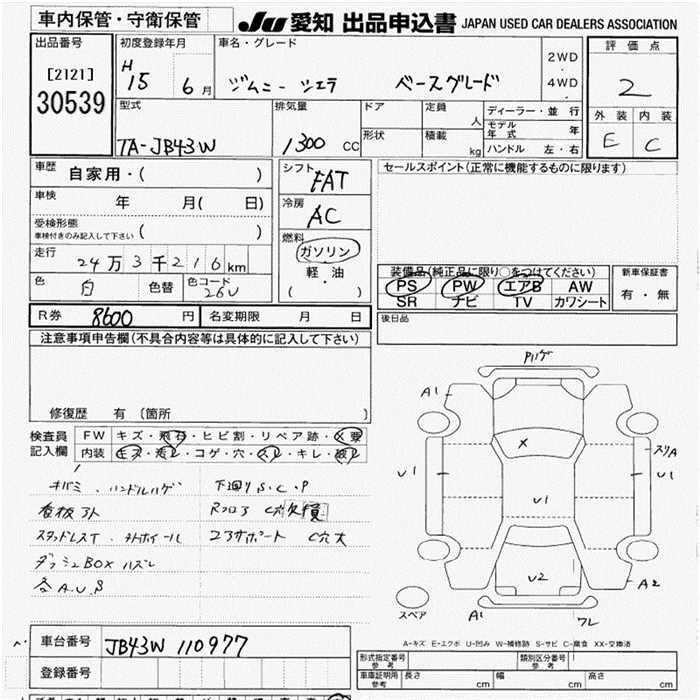 車内保管・守衛保管
JU 愛知 出品申込書 JAPAN USED CAR DEALERS ASSOCIATION
出品番号
[2121]
30539
初度登録年月
H
15 6月
車名・グレード
ジムニー シエラ ベースグレード
2WD
・
4WD
評価点
2
外装 内装
E C
型式
TA-JB43W
排気量
1300 CC
ドア
形状
定員
人
積載
kg
ディーラー・並行
モデル年式 年
ハンドル 左・右
車歴
自家用・( )
車検
年 月( 日)
受検形態
車検付きのみ記入して下さい ( )
走行
24万3千216km
色
白
色替
色コード
26U
シフト
FAT
冷房
AC
燃料
ガソリン
軽・油
( ・ )
セールスポイント(正常に機能するものに限ります)
装備品(純正品に限り○をつけてください)
PS PW エアB AW
SR ナビ TV カワシート
新車保証書
有・無
R券 8600 円 名変期限 月 日
後日品
注意事項申告欄(不具合内容等は具体的に記入して下さい)
修復歴 有 (箇所 )
検査員
記入欄
FW キズ・飛石・ヒビ割・リペア跡・X要
内装
コゲ・穴・スレ・キレ・破レ
キバミ、ハンドルハゲ
看板アト
スタッドレスT、
ダッシュBOXハズレ
下廻りS.C.P
Rフロア C穴欠損
コアサポート C穴大
Pハゲ
A1
U1
X
U1
スリA
U1
U2
A2
A1
ワレ
スペア
A-キズ E-エクボ U-凹み W-補修跡 S-サビ C-腐食 XX-交換済
車台番号 JB43W 110977
登録番号
形式指定番号
参考
類別区分番号
参考
車庫証明用
参考
長さ cm 幅 cm 高さ cm